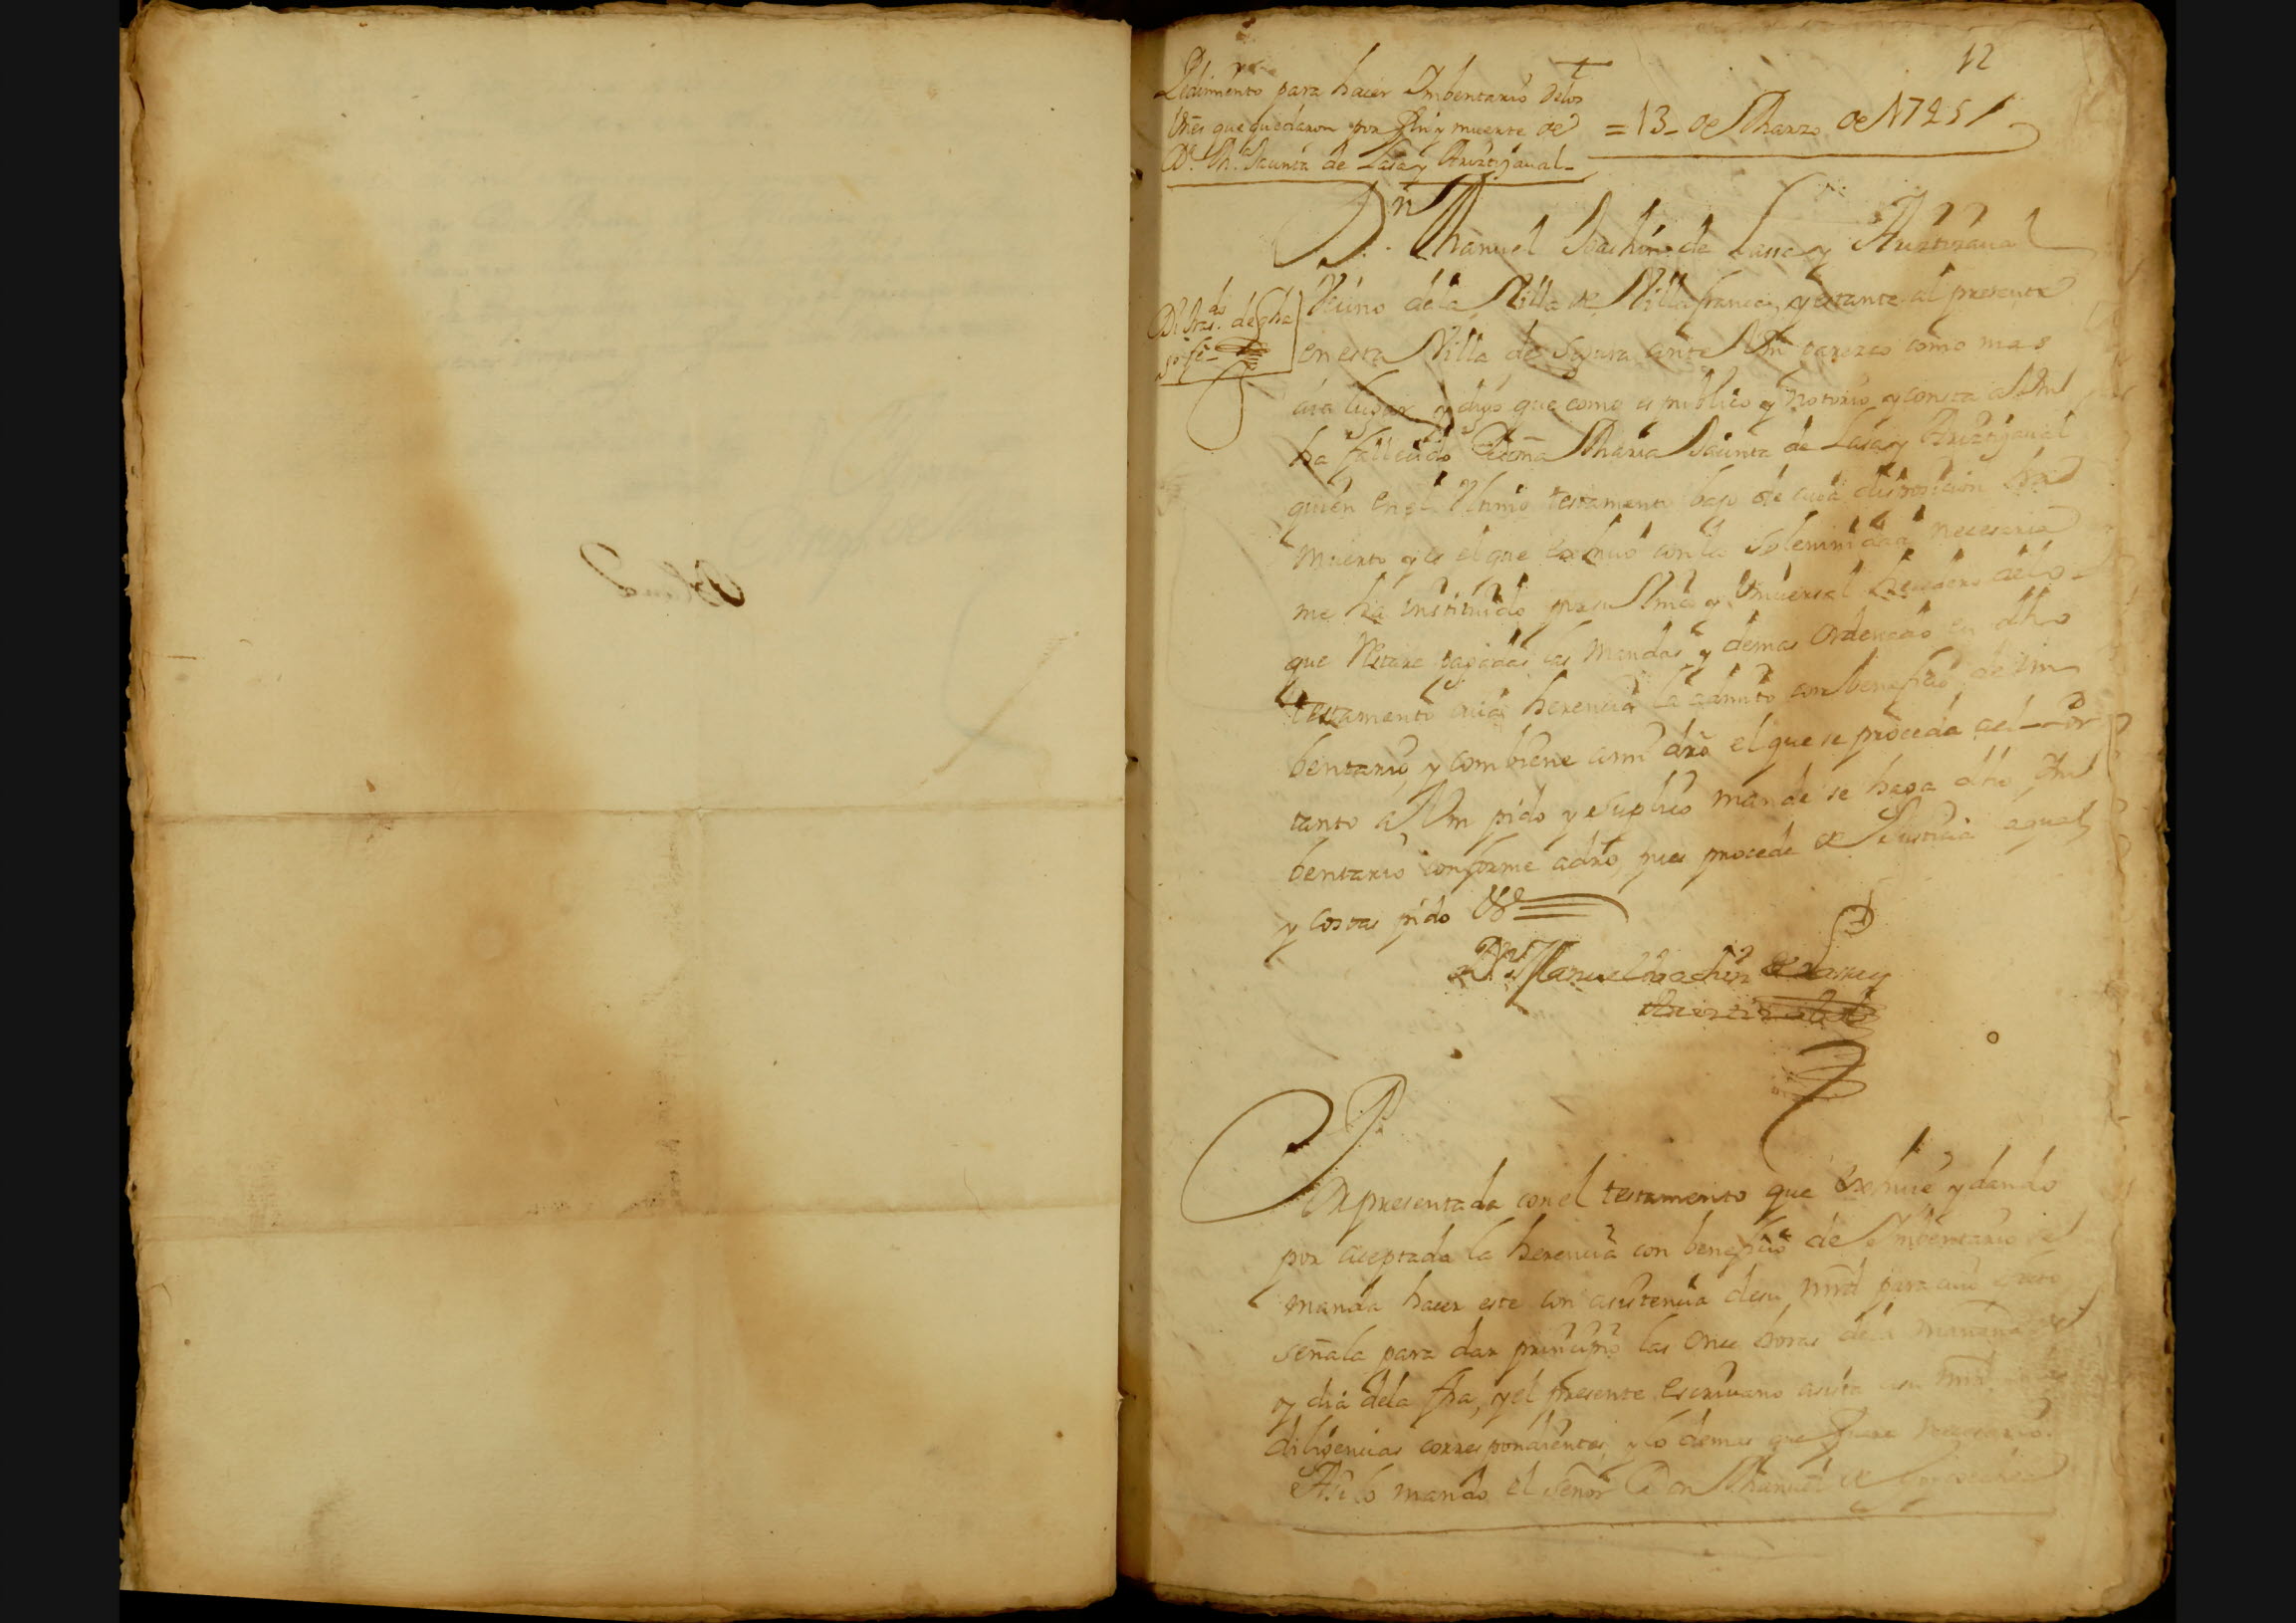 12
Pedimento para hacer Imbentario delos
vnes que quedaron por fin y muerte de
Dª. Mª. Jacinta de Lasa y Ariztizaual
= 13 de Marzo de 1725
Dn. Manuel Joachin de Lassa y Ariztizaual
Vecino dela Villa de Villafranca, y estante al presente
en esta Villa de Segura ante Vm parezco como mas
aia lugar y digo que como es publico y notorio y consta a Vm
ha fallecido Doña Maria Jacinta de Lasa y Ariztizaual
quien en el Vltimo testamento bajo de cuia disposicion ha
muerto y es el que exhiuo con la solemnidad necesaria
me ha instituido por su Vnico y Vniuersal heredero delo
que restare pagadas las mandas y demas ordenado en dho
testamento cuia herencia la admito con beneficio de Im
bentario, y combiene a mi dro el que se proceda ael Por
tanto a Vm pido y suplico mande se haga dho Im
bentario conforme adro, pues procede de Justicia a qual
y costas pido &ª
Dn Manuel Joachin de Lassa y
Ariztizabal
Por presentada con el testamento que exhiue y dando
por aceptada la herencia con beneficio de Imbentario se
manda hacer este con asistencia desu mrd para cuio efecto
señala para dar principio las once horas dela mañana
y dia dela fha, y el presente escriuano asista a su mrd
diligencias correspondientes, y lo demas que fuere necesario.
Asi lo mando el señor Don Manuel de